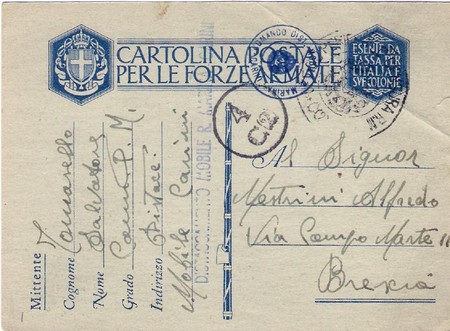 CARTOLINA POSTALE
PER LE FORZE ARMATE
ESENTE DA
TASSA PER
L'ITALIA E
SUE COLONIE
4
C2
Al Signor
Mestrini Alfredo
Via Campo Marte 11
Brescia
Mittente
Cognome Tomasello
Nome Salvatore
Grado P. M.
Indirizzo Distacc
Mobile Camini
DISTACCAMENTO MOBILE R.